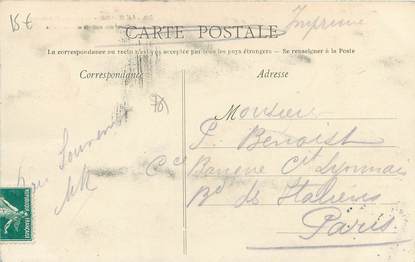 15€
Imprimé
CARTE POSTALE
La correspondance au recto n'est pas acceptée par tous les pays étrangers — Se renseigner à la Poste
Correspondance
Adresse
Monsieur
P. Benoist
Cie Banque Ct Lyonnais
Bd des Italiens
Paris
Souvenir